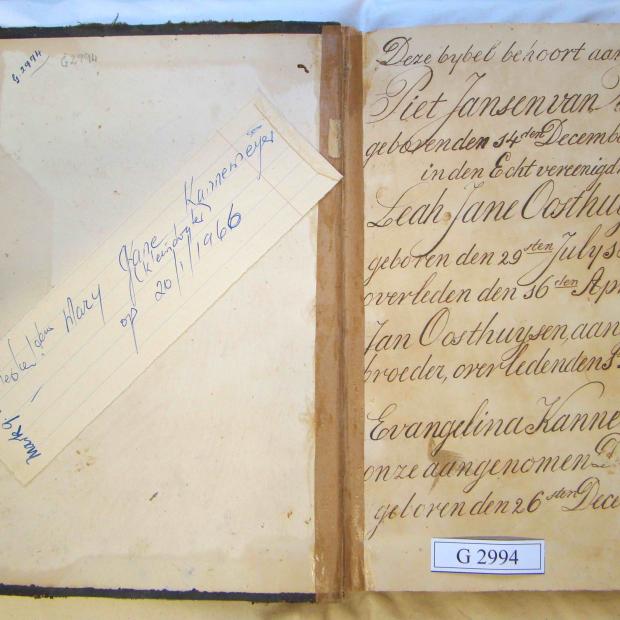 G 2994
G2994
Mary Jane Kannemeyer
(Kleindogter
op 20/1/1966
Deze bybel behoort aan
Piet Jansen van
geboren den 14den Decemb
in den Echt vereenigd
Leah Jane Oosthuy
geboren den 29sten July
overleden den 16den Ap
Jan Oosthuysen, aan
broeder, overleden den
Evangelina Kanne
onze aangenomen
geboren den 26sten Dece
G 2994